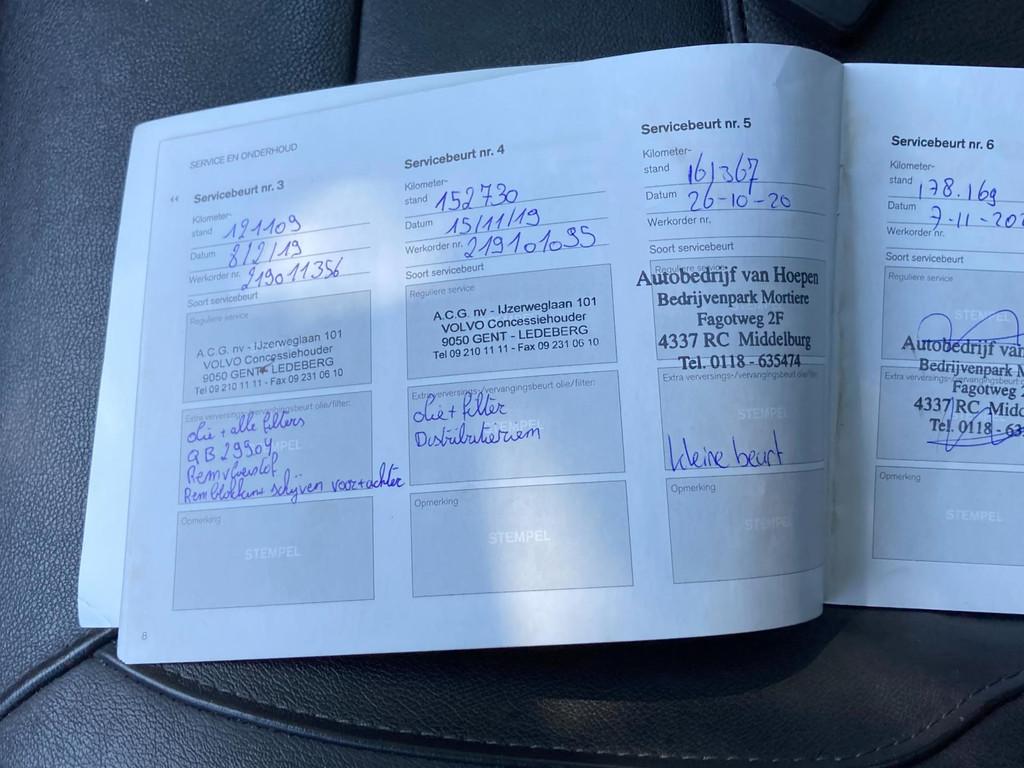 SERVICE EN ONDERHOUD
‹‹ Servicebeurt nr. 3
Kilometer-
stand 121109
Datum 8/2/19
Werkorder nr. 219011356
Soort servicebeurt
Reguliere service
A.C.G. nv - IJzerweglaan 101
VOLVO Concessiehouder
9050 GENT - LEDEBERG
Tel 09 210 11 11 - Fax 09 231 06 10
Extra verversings-/vervangingsbeurt olie/filter:
olie + alle filters
Remvloeistof
Remblokken + schijven voor + achter
Opmerking
STEMPEL
8
Servicebeurt nr. 4
Kilometer-
stand 152730
Datum 15/11/19
Werkorder nr. 219101095
Soort servicebeurt
Reguliere service
A.C.G. nv - IJzerweglaan 101
VOLVO Concessiehouder
9050 GENT - LEDEBERG
Tel 09 210 11 11 - Fax 09 231 06 10
Extra verversings-/vervangingsbeurt olie/filter:
olie + filter
Distributieriem
Opmerking
STEMPEL
Servicebeurt nr. 5
Kilometer-
stand 161367
Datum 26-10-20
Werkorder nr.
Soort servicebeurt
Reguliere service
Autobedrijf van Hoepen
Bedrijvenpark Mortiere
Fagotweg 2F
4337 RC Middelburg
Tel. 0118 - 635474
Extra verversings-/vervangingsbeurt olie/filter:
STEMPEL
kleine beurt
Opmerking
STEMPEL
Servicebeurt nr. 6
Kilometer-
stand 178.169
Datum 7-11-202
Werkorder nr.
Soort servicebeurt
Reguliere service
STEMPEL
Autobedrijf van
Bedrijvenpark M
Fagotweg 2
4337 RC Midd
Tel. 0118 - 63
Opmerking
STEMPEL